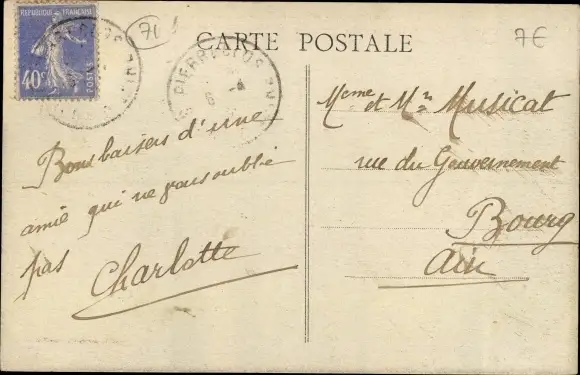 REPUBLIQUE FRANÇAISE
40c
POSTES
71
CARTE POSTALE
7€
PIERRECLOS
Bons baisers d'une
amie qui ne vous oublie
pas
Charlotte
Mme et Mr Musicat
rue du Gouvernement
Bourg
Ain